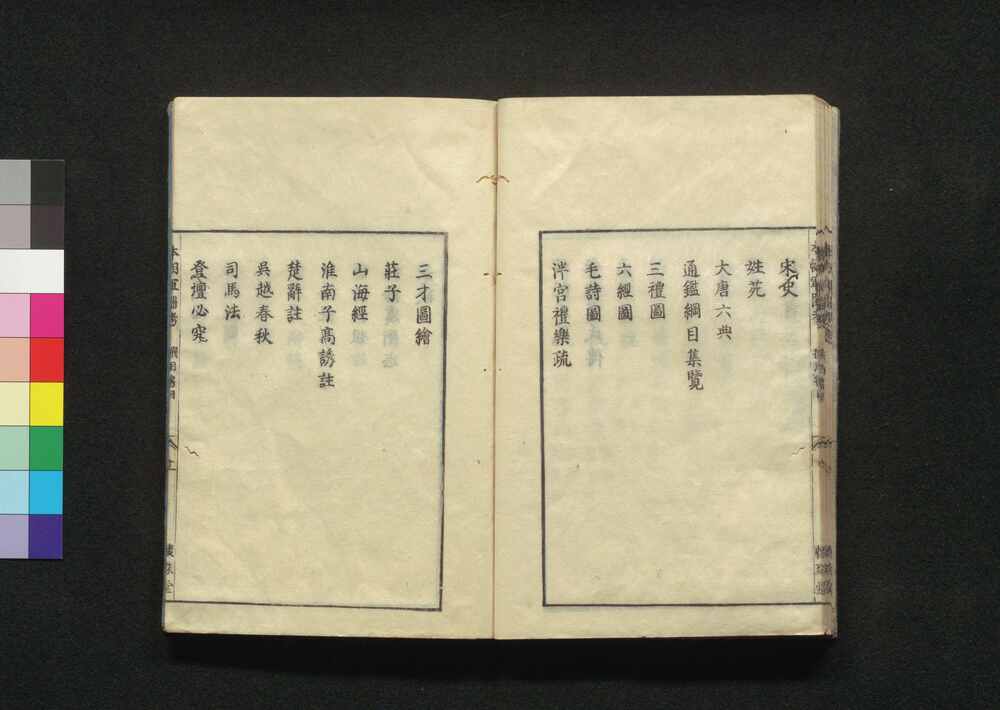 宋史
姓苑
大唐六典
通鑑綱目集覽
三禮圖
六經圖
毛詩圖
泮宮禮樂疏
三才圖繪
莊子
山海經
淮南子高誘註
楚辭註
吳越春秋
司馬法
登壇必究